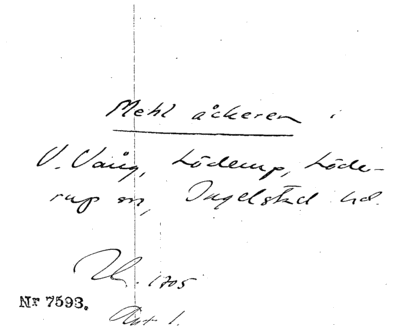 Mehl åckeren i
V. Vång, Löderup, Löde-
rup sn, Ingelstad hd.
1705
Nr 7593.
Akt 1.